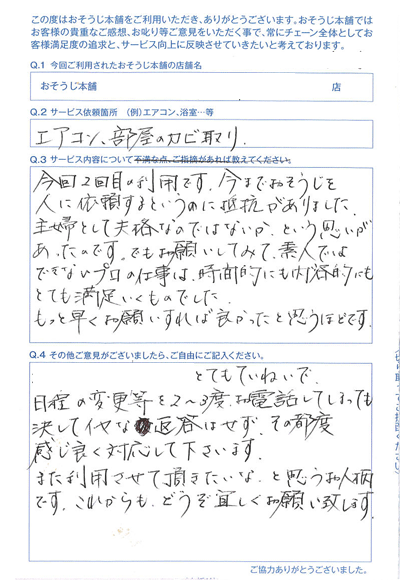 この度はおそうじ本舗をご利用いただき、ありがとうございます。おそうじ本舗では
お客様の貴重なご感想、お叱り等ご意見をいただく事で、常にチェーン全体としてお
客様満足度の追求と、サービス向上に反映させていきたいと考えております。
Q.1 今回ご利用されたおそうじ本舗の店舗名
おそうじ本舗 店
Q.2 サービス依頼箇所 (例)エアコン、浴室…等
エアコン、部屋のカビ取り.
Q.3 サービス内容について不満な点、ご指摘があれば教えてください。
今回2回目の利用です。今までおそうじを
人に依頼するというのに抵抗がありました.
主婦として失格なのではないか、という思いが
あったのです。でもお願いしてみて、素人では
できないプロの仕事は、時間的にも内容的にも
とても満足いくものでした.
もっと早くお願いすれば良かったと思うほどです.
Q.4 その他ご意見がございましたら、ご自由にご記入ください。
とてもていねいで.
日程の変更等を2〜3度.お電話してしまっても
決してイヤな返答はせず.その都度
感じ良く対応して下さいます.
また利用させて頂きたいな.と思うお人柄
です.これからも.どうぞ宜しくお願い致します
ご協力ありがとうございました。